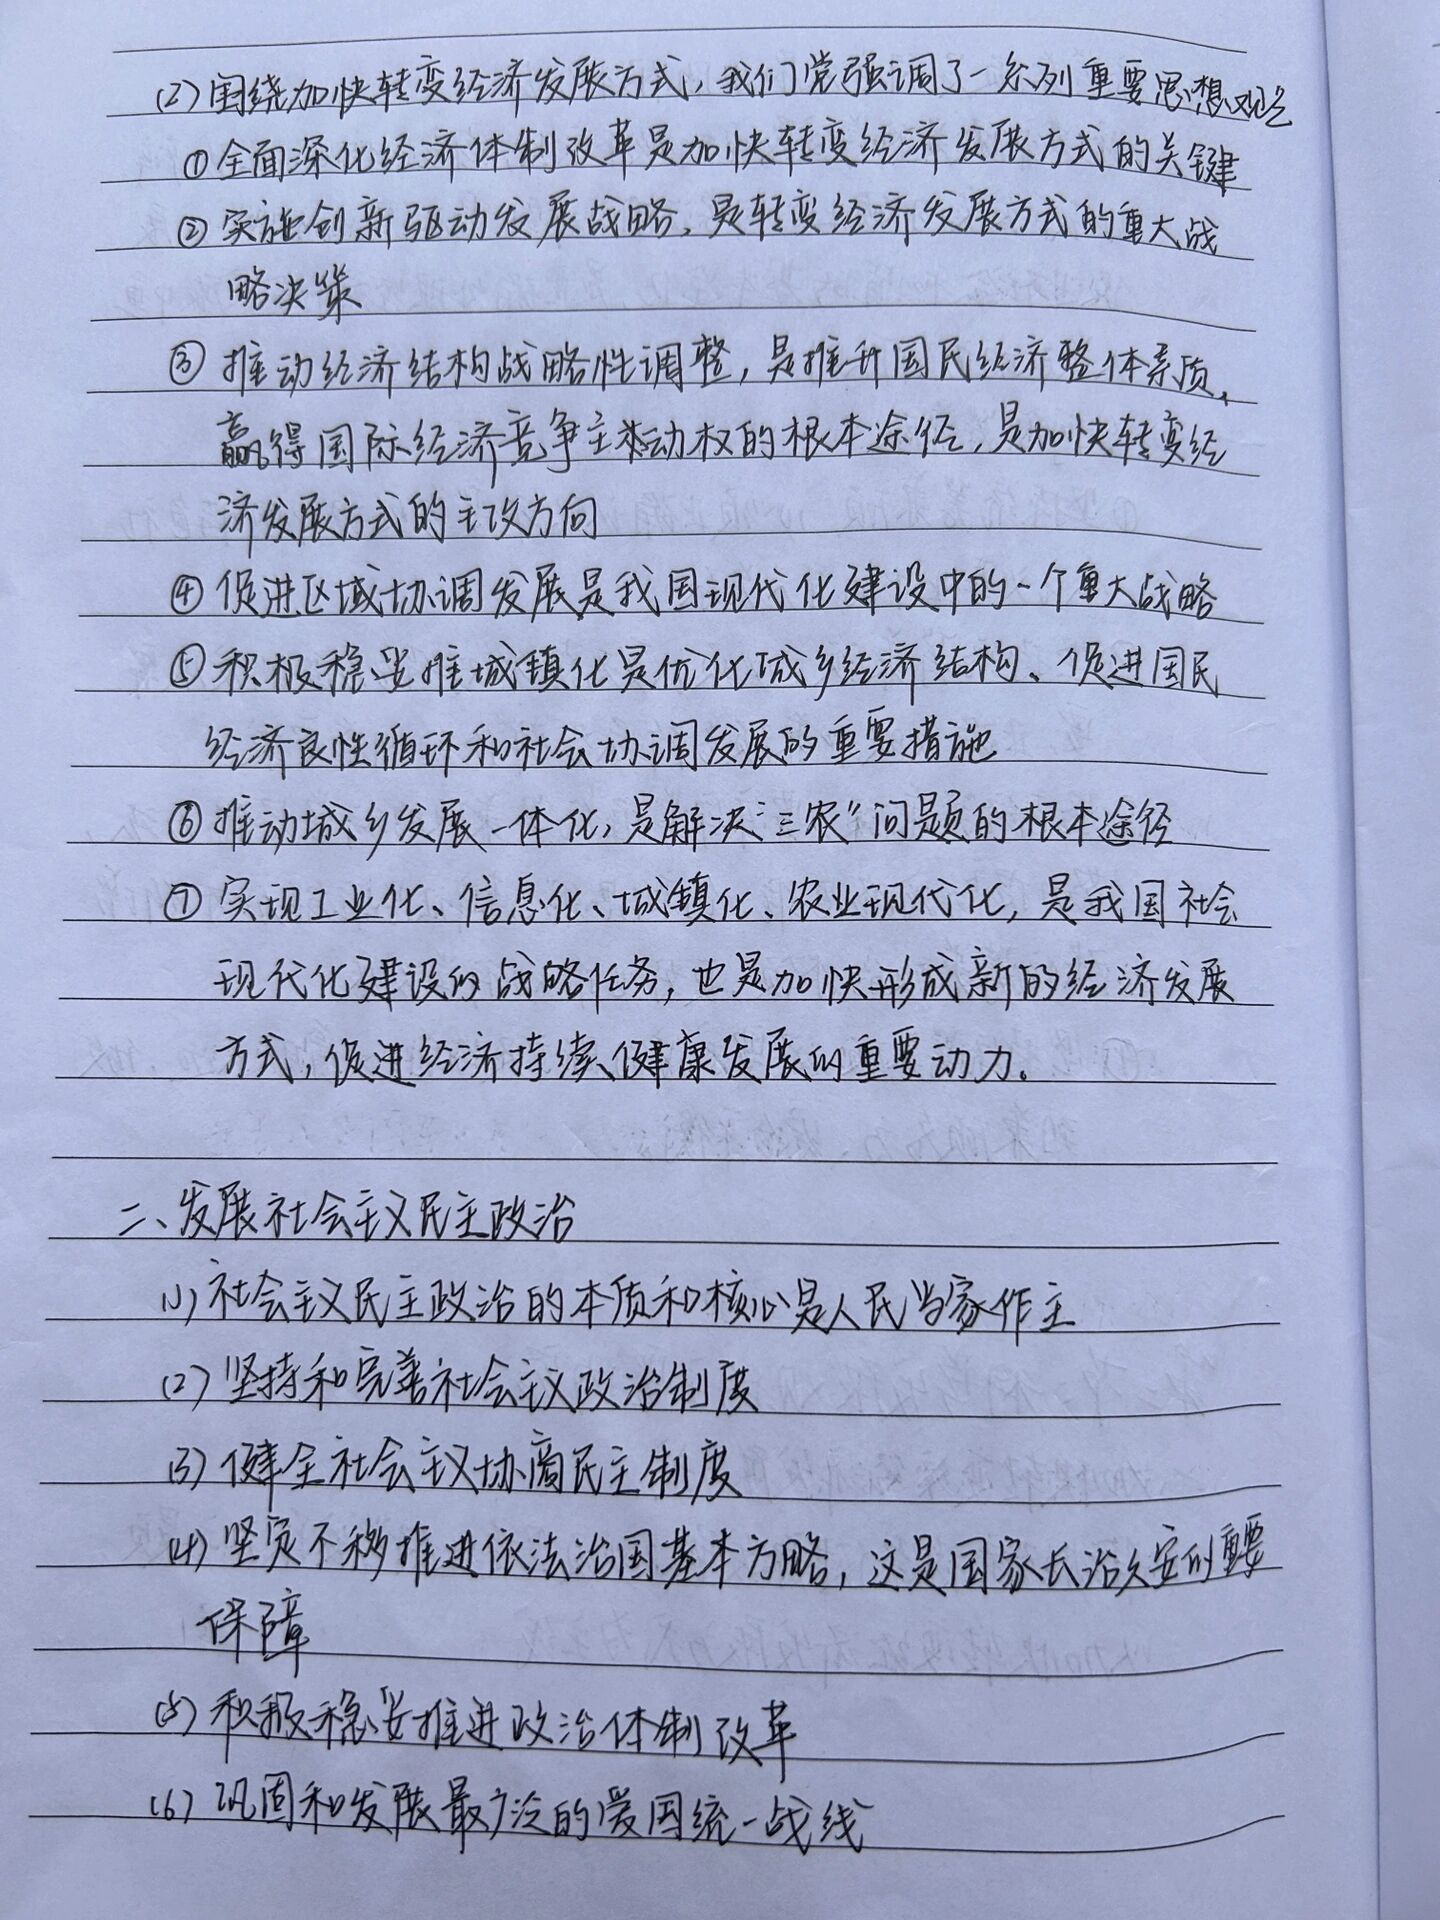 (2) 围绕加快转变经济发展方式，我们党强调了一系列重要思想观念
①全面深化经济体制改革是加快转变经济发展方式的关键
②实施创新驱动发展战略，是转变经济发展方式的重大战
略决策
③推动经济结构战略性调整，是推升国民经济整体素质、
赢得国际经济竞争主动权的根本途径，是加快转变经
济发展方式的主攻方向
④促进区域协调发展是我国现代化建设中的一个重大战略
⑤积极稳妥推城镇化是优化城乡经济结构、促进国民
经济良性循环和社会协调发展的重要措施
⑥推动城乡发展一体化，是解决“三农”问题的根本途径
⑦实现工业化、信息化、城镇化、农业现代化，是我国社会
现代化建设的战略任务，也是加快形成新的经济发展
方式，促进经济持续、健康发展的重要动力。
二、发展社会主义民主政治
(1) 社会主义民主政治的本质和核心是人民当家作主
(2) 坚持和完善社会主义政治制度
(3) 健全社会主义协商民主制度
(4) 坚定不移推进依法治国基本方略，这是国家长治久安的重要
保障
(5) 积极稳妥推进政治体制改革
(6) 巩固和发展最广泛的爱国统一战线